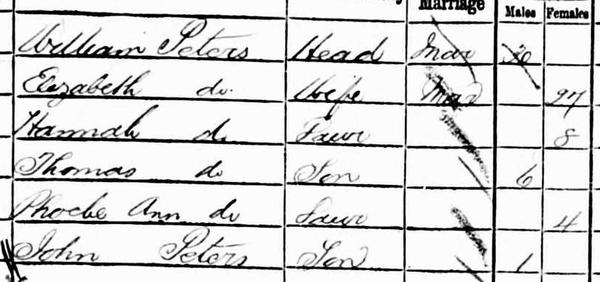 Marriage Males Females
William Peters Head Mar 30
Elizabeth do. Wife Mar 27
Hannah do Daur 8
Thomas do Son 6
Phoebe Ann do Daur 4
John Peters Son 1